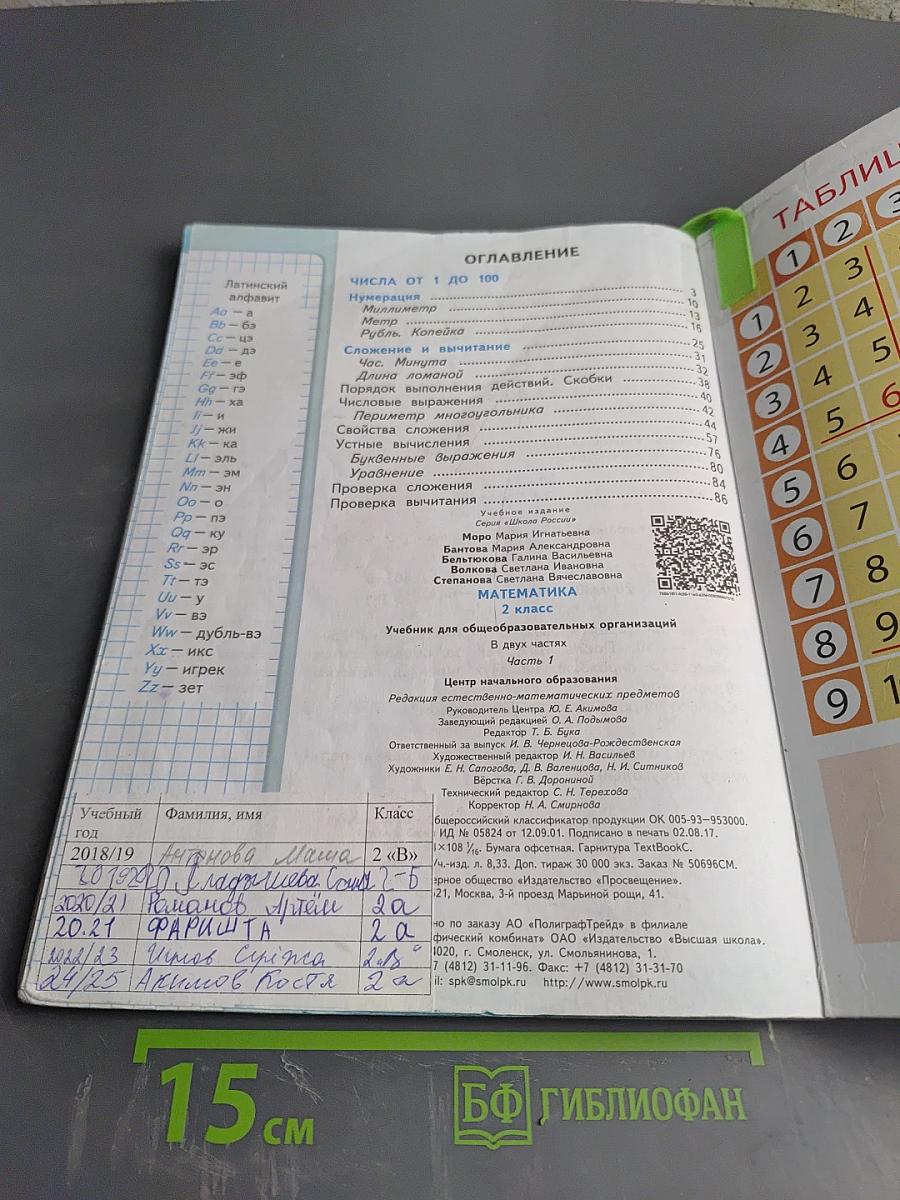 Латинский
алфавит
Aa — а
Bb — бэ
Cc — цэ
Dd — дэ
Ee — е
Ff — эф
Gg — гэ
Hh — ха
Ii — и
Jj — жи
Kk — ка
Ll — эль
Mm — эм
Nn — эн
Oo — о
Pp — пэ
Qq — ку
Rr — эр
Ss — эс
Tt — тэ
Uu — у
Vv — вэ
Ww — дубль-вэ
Xx — икс
Yy — игрек
Zz — зет
ОГЛАВЛЕНИЕ
ЧИСЛА ОТ 1 ДО 100
Нумерация 3
Миллиметр 10
Метр 13
Рубль. Копейка 16
Сложение и вычитание 25
Час. Минута 31
Длина ломаной 32
Порядок выполнения действий. Скобки 38
Числовые выражения 40
Периметр многоугольника 42
Свойства сложения 44
Устные вычисления 57
Буквенные выражения 76
Уравнение 80
Проверка сложения 84
Проверка вычитания 86
Учебное издание
Серия «Школа России»
Моро Мария Игнатьевна
Бантова Мария Александровна
Бельтюкова Галина Васильевна
Волкова Светлана Ивановна
Степанова Светлана Вячеславовна
МАТЕМАТИКА
2 класс
Учебник для общеобразовательных организаций
В двух частях
Часть 1
Центр начального образования
Редакция естественно-математических предметов
Руководитель Центра Ю. Е. Акимова
Заведующий редакцией О. А. Подымова
Редактор Т. Б. Бука
Ответственный за выпуск И. В. Чернецова-Рождественская
Художественный редактор И. Н. Васильев
Художники Е. Н. Сапогова, Д. В. Валенцова, Н. И. Ситников
Вёрстка Г. В. Дорониной
Технический редактор С. Н. Терехова
Корректор Н. А. Смирнова
бщероссийский классификатор продукции ОК 005-93—953000.
ИД № 05824 от 12.09.01. Подписано в печать 02.08.17.
×108 1/16. Бумага офсетная. Гарнитура TextBookC.
ч.-изд. л. 8,33. Доп. тираж 30 000 экз. Заказ № 50696СМ.
ерное общество «Издательство «Просвещение».
521, Москва, 3-й проезд Марьиной рощи, 41.
но по заказу АО «ПолиграфТрейд» в филиале
фический комбинат» ОАО «Издательство «Высшая школа».
4020, г. Смоленск, ул. Смольянинова, 1.
7 (4812) 31-11-96. Факс: +7 (4812) 31-31-70
il: spk@smolpk.ru http://www.smolpk.ru
Учебный год Фамилия, имя Класс
2018/19 Антонова Маша 2 «В»
2-Б
2020/21 Романов Артём 2а
20.21 ФАРИШТА 2 а
2022/23 2 „В“
24/25 Акимов Костя 2 а
ТАБЛИЦ
1 2 3
1 2 3
2 3 4
3 4 5
4 5 6
5 6
6 7
7 8
8 9
9 1
15 см
БФ ГИБЛИОФАН